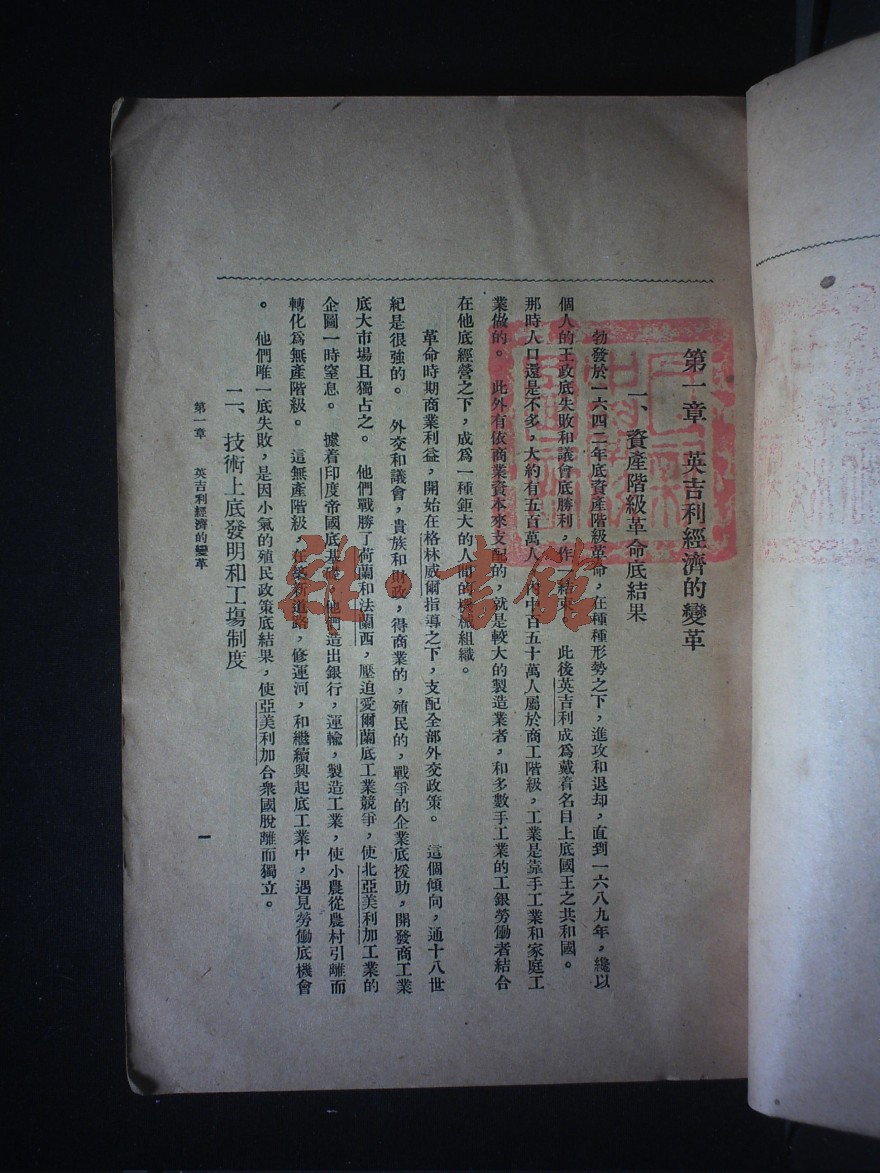 第一章 英吉利經濟的變革
一、資產階級革命底結果
勃發於一六四二年底資產階級革命,在種種形勢之下,進攻和退却,直到一六八九年,纔以
個人的王政底失敗和議會底勝利,作一結束。 此後英吉利成爲戴着名目上底國王之共和國。
那時人口還是不多,大約有五百萬人,內中百五十萬人屬於商工階級,工業是靠手工業和家庭工
業做的。 此外有依商業資本來支配的,就是較大的製造業者,和多數手工業的工銀勞働者結合
在他底經營之下,成爲一種鉅大的人間的機械組織。
革命時期商業利益,開始在格林威爾指導之下,支配全部外交政策。 這個傾向,通十八世
紀是很強的。 外交和議會,貴族和財政,得商業的,殖民的,戰爭的企業底援助,開發商工業
底大市場且獨占之。 他們戰勝了荷蘭和法蘭西,壓迫愛爾蘭底工業競爭,使北亞美利加工業的
企圖一時窒息。 據着印度帝國底基礎,他們造出銀行,運輸,製造工業,使小農從農村引離而
轉化爲無產階級。 這無產階級,在築新道路,修運河,和繼續興起底工業中,遇見勞働底機會
。 他們唯一底失敗,是因小氣的殖民政策底結果,使亞美利加合衆國脫離而獨立。
二、技術上底發明和工場制度
第一章 英吉利經濟的變革
一
雜·書館